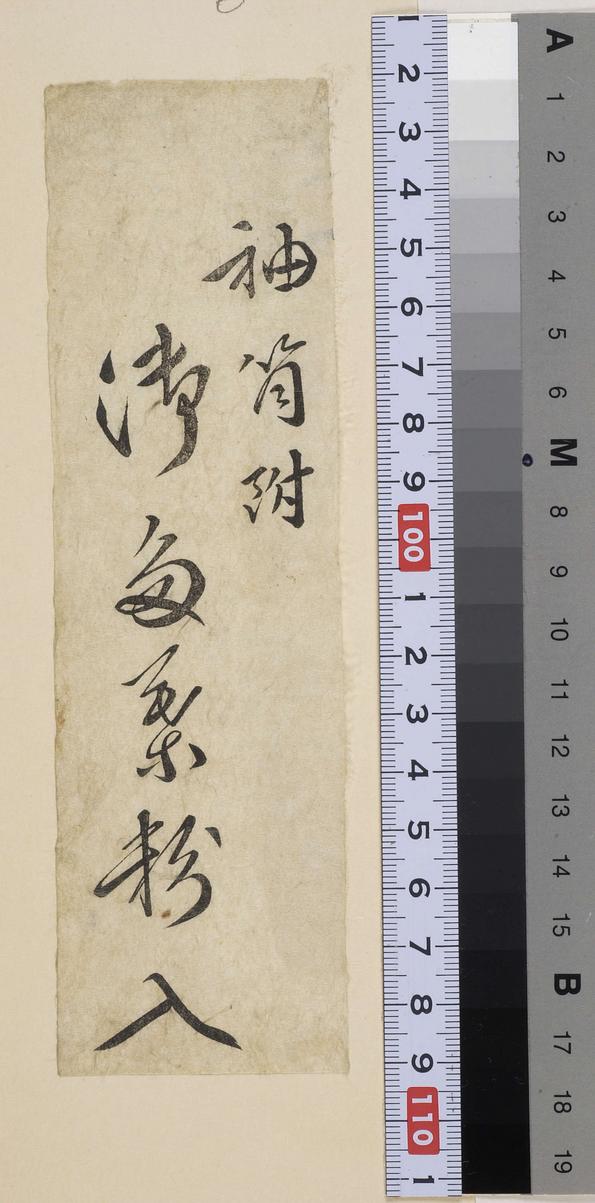 袖筒附
御多葉粉入
1 2 3 4 5 6 7 8 9 100 1 2 3 4 5 6 7 8 9 110 1
A 1 2 3 4 5 6 M 8 9 10 11 12 13 14 15 B 17 18 19